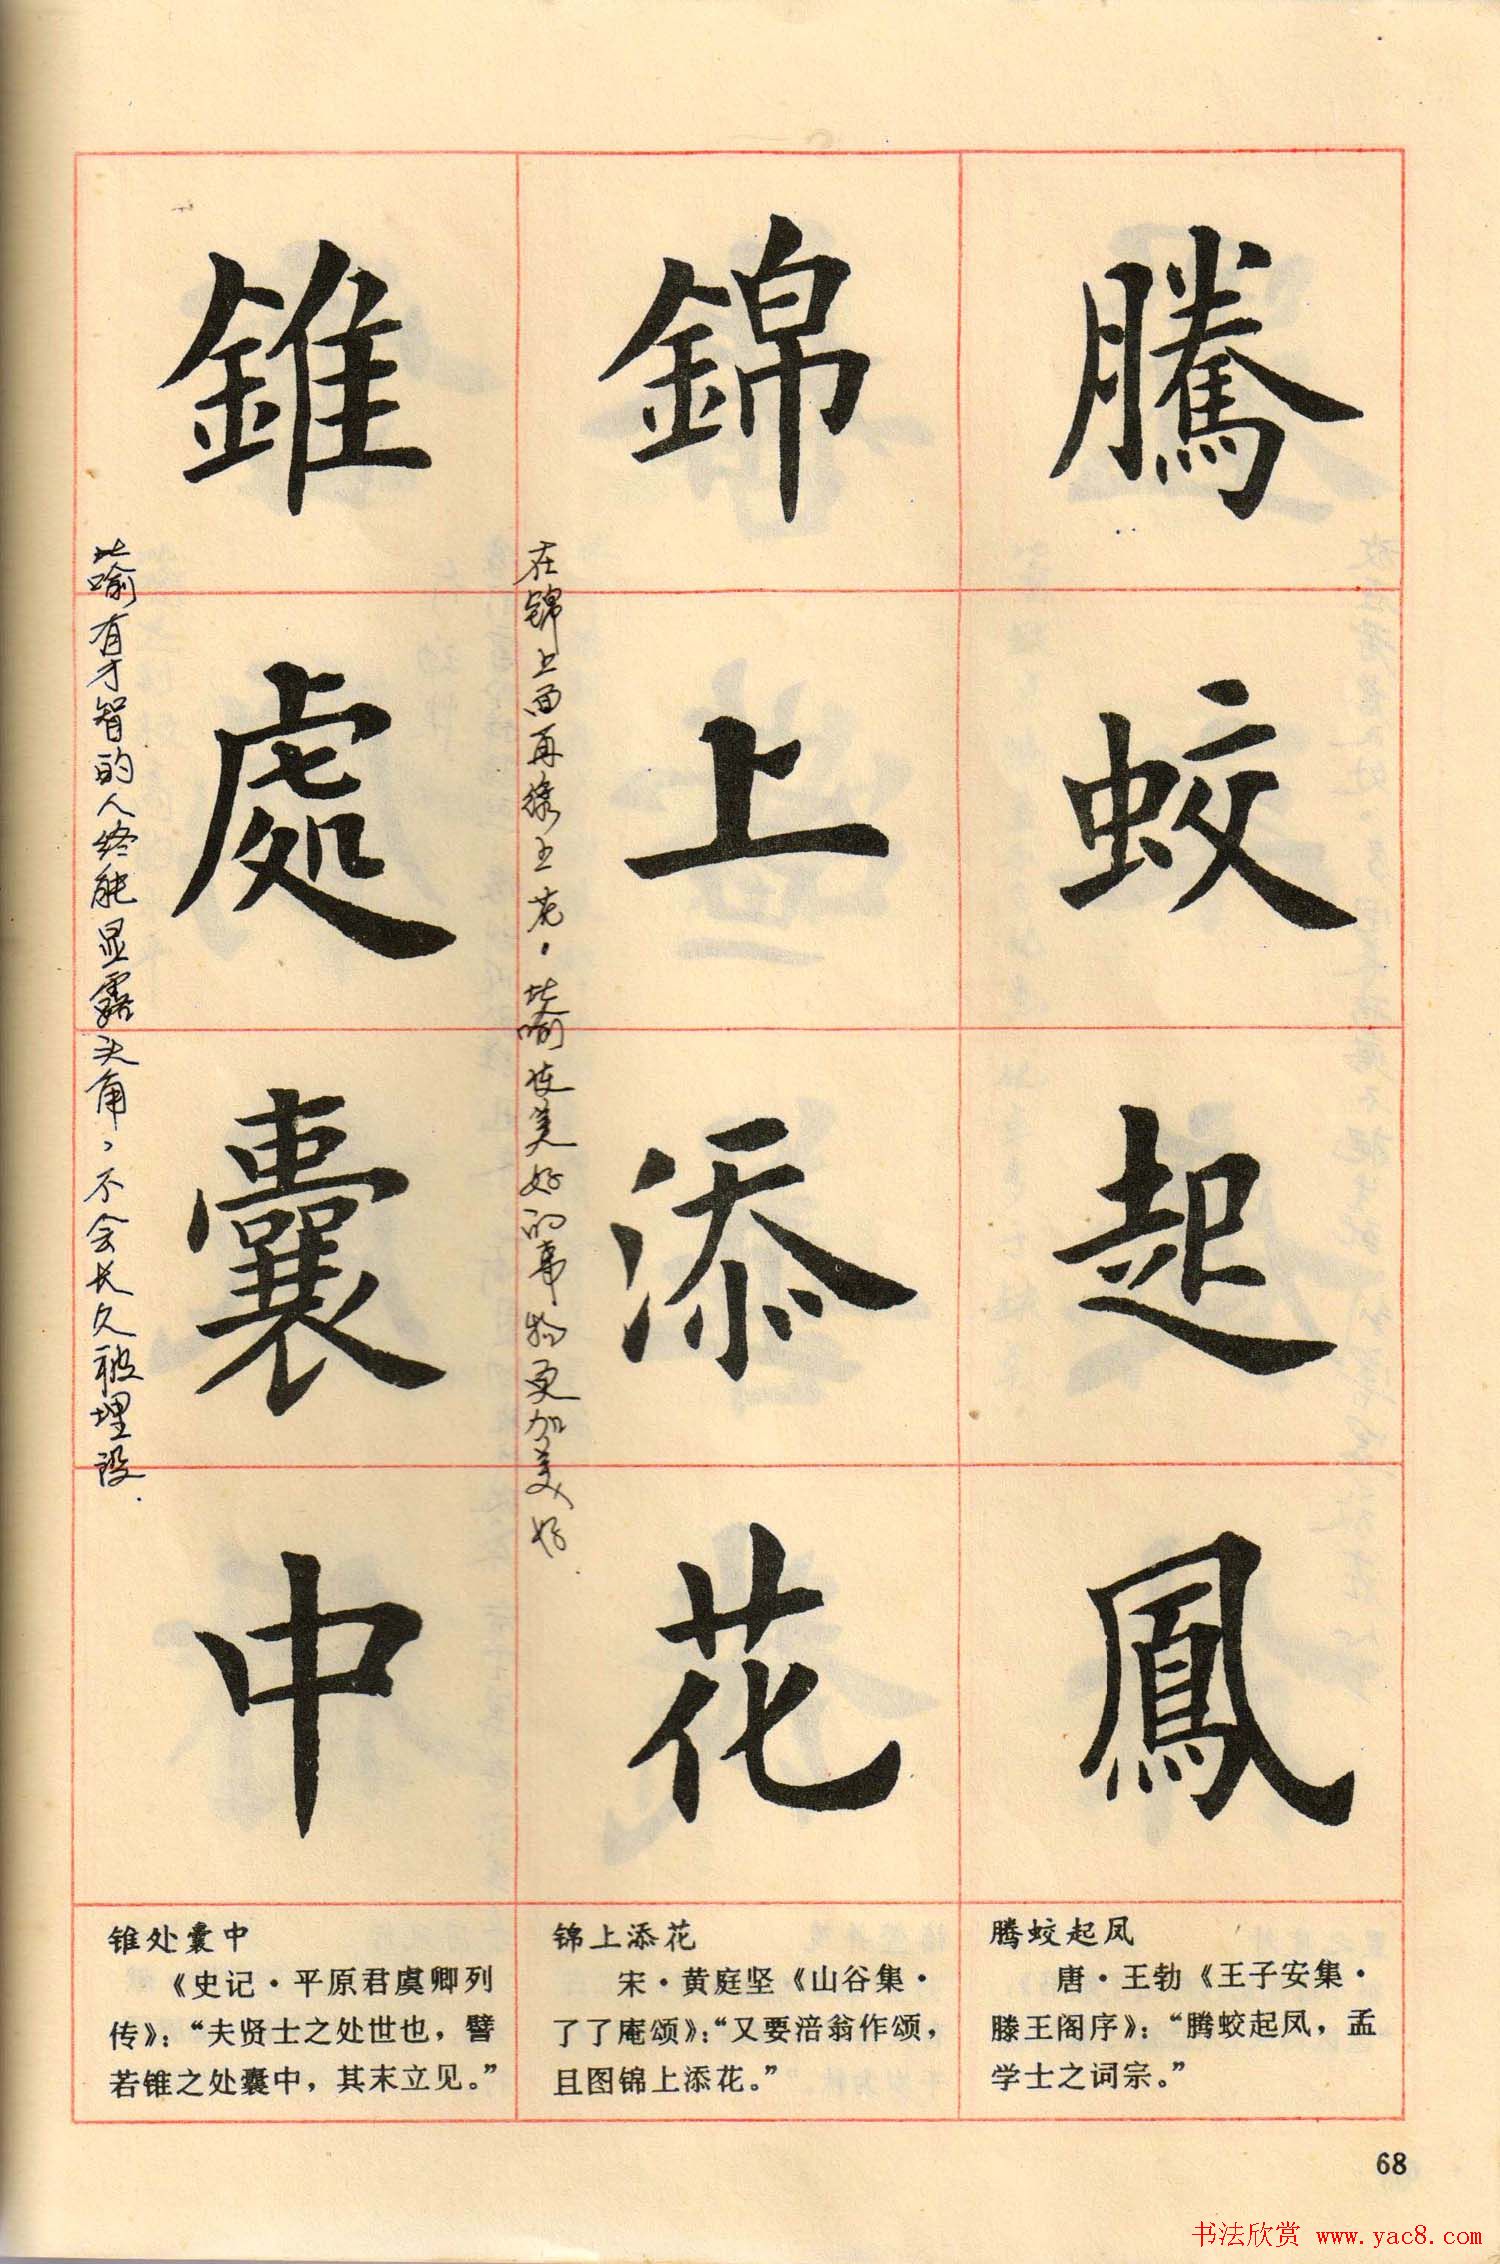 騰蛟起鳳
錦上添花
在锦上面再绣上花，比喻使美好的事物更加美好
錐處囊中
比喻有才智的人终能显露头角，不会长久被埋没.
锥处囊中
《史记·平原君虞卿列
传》：“夫贤士之处世也，譬
若锥之处囊中，其末立见。”
锦上添花
宋·黄庭坚《山谷集·
了了庵颂》：“又要涪翁作颂，
且图锦上添花。”
腾蛟起凤
唐·王勃《王子安集·
滕王阁序》：“腾蛟起凤，孟
学士之词宗。”
68
书法欣赏 www.yac8.com